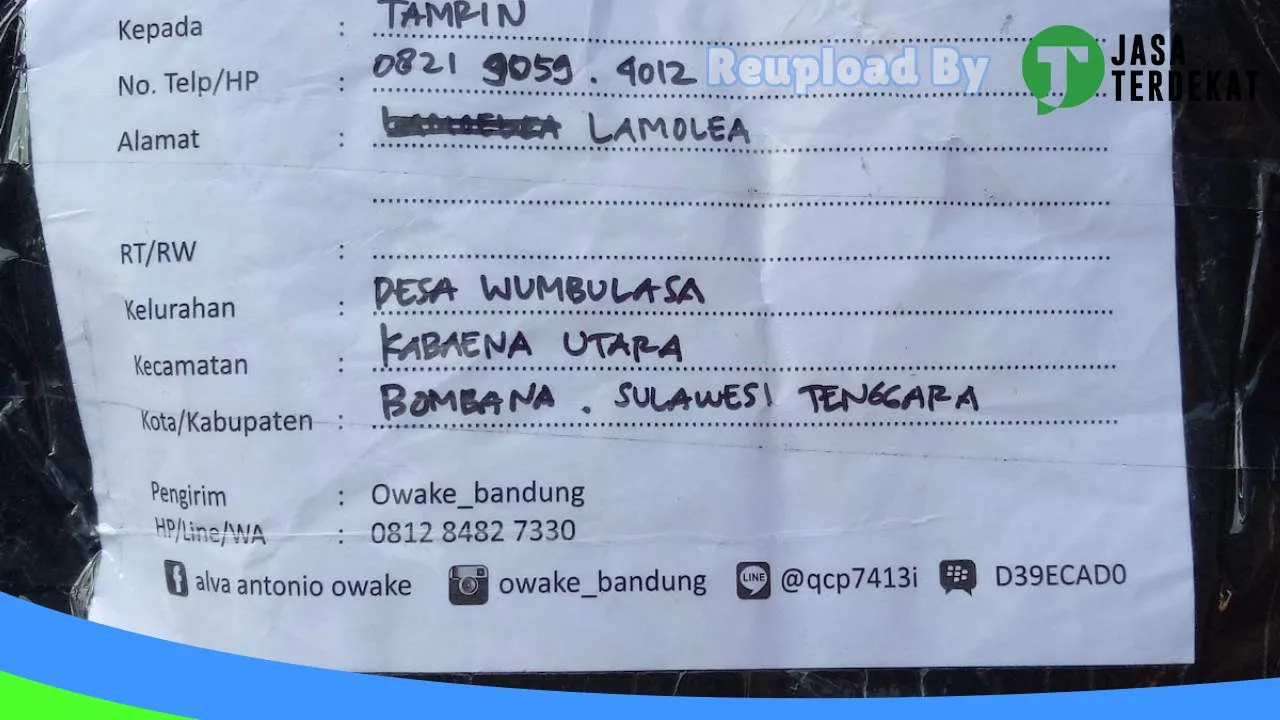 Kepada : TAMRIN
No. Telp/HP : 0821 9059 . 4012
Reupload By
JASA
TERDEKAT
Alamat : LAMOLEA
RT/RW :
Kelurahan : DESA WUMBULASA
Kecamatan : KABAENA UTARA
Kota/Kabupaten : BOMBANA . SULAWESI TENGGARA
Pengirim : Owake_bandung
HP/Line/WA : 0812 8482 7330
f alva antonio owake owake_bandung LINE @qcp7413i D39ECAD0